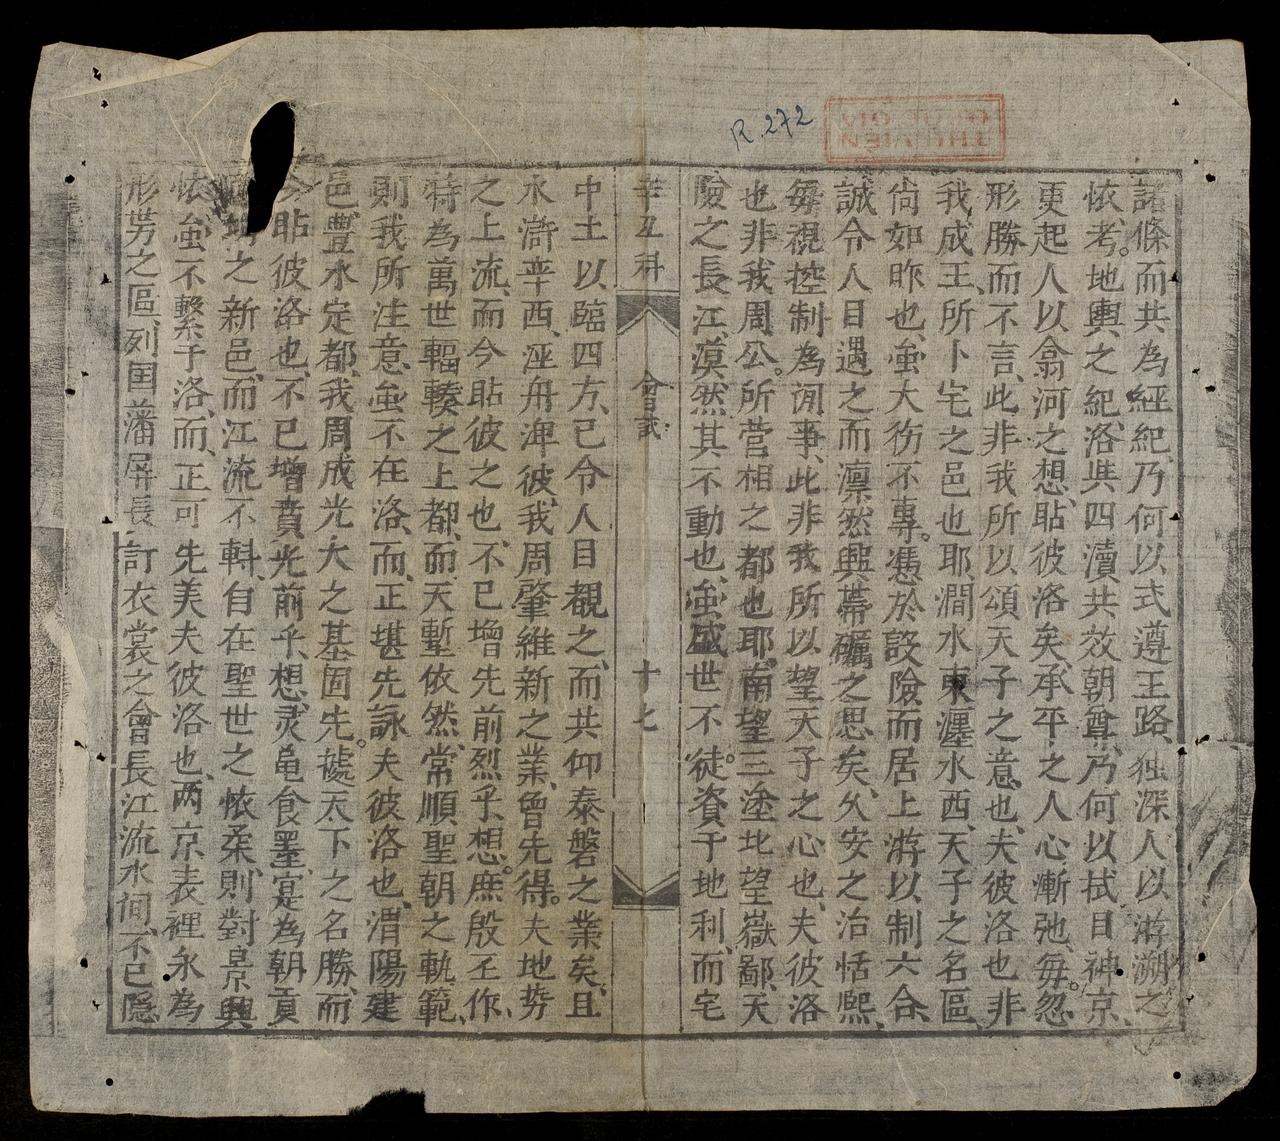 R.272
THƯ VIỆN
QUỐC GIA
諸條而共為經紀乃何以式遵王路独深人以游溯之
依考地輿之紀洛与四瀆共效朝尊乃何以拭目神京
更起人以翕河之想貼彼洛矣承平之人心漸弛每忽
形勝而不言此非我所以頌天子之意也夫彼洛也非
我成王所卜宅之邑也耶澗水東瀍水西天子之名區
尚如昨也虽大衍不專憑於設險而居上游以制六合
誠令人目遇之而凛然興帶礪之思矣久安之治恬熙
每視控制為閒事此非我所以望天子之心也夫彼洛
也非我周公所营相之都也耶南望三塗北望嶽鄙天
險之長江漠然其不動也虽盛世不徒資于地利而宅
辛丑科 會試 十七
中土以臨四方已令人目覩之而共仰泰磐之業矣且
水滸率西涇舟渒彼我周肇維新之業曾先得夫地势
之上流而今貼彼之也不已增先前烈乎想庶殷丕作
特為萬世輻輳之上都而天塹依然常順聖朝之軌範
則我所注意虽不在洛而正堪先詠夫彼洛也渭陽建
邑豊水定都我周成光大之基固先據天下之名勝而
今貼彼洛也不已增賁光前乎想灵亀食墨寔為朝貢
之新邑而江流不斡自在聖世之懷柔則對景興
依虽不繫于洛而正可先美夫彼洛也両京表裡永為
形势之區列国藩屏長訂衣裳之會長江流水间不已隐